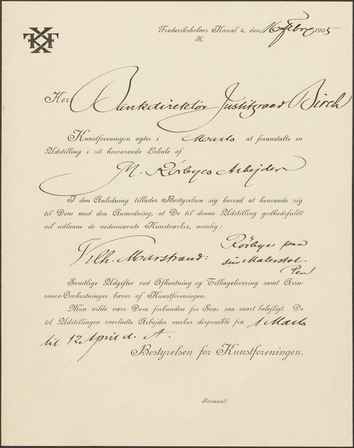 Frederiksholms Kanal 4, den 16 Febr. 1905
K.
Herr Bankdirektør Justitsraad Birch
Kunstforeningen agter i Marts at foranstalte en
Udstilling i sit herværende Lokale af
M. Rørbyes Arbejder
I den Anledning tillader Bestyrelsen sig herved at henvende sig
til Dem med den Anmodning, at De til denne Udstilling godhedsfuldt
vil udlaane de nedennævnte Kunstværker, nemlig:
Vilh. Marstrand: Rørbye paa
sin Malerstol
Pen
Samtlige Udgifter ved Afhentning og Tilbagelevering samt Assu-
rance-Omkostninger bæres af Kunstforeningen.
Man vilde være Dem forbunden for Svar saa snart belejligt. De
til Udstillingen overladte Arbejder ønskes disponible fra 1 Marts
til 12 April d. A.
Bestyrelsen for Kunstforeningen.